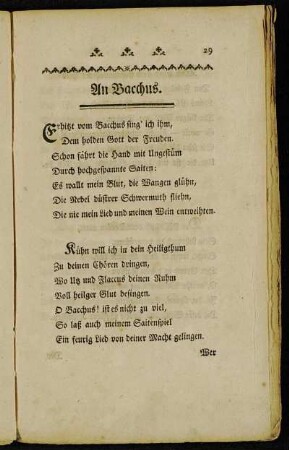 29
An Bacchus.
Erhitzt vom Bacchus sing' ich ihm,
Dem holden Gott der Freuden.
Schon fährt die Hand mit Ungestüm
Durch hochgespannte Saiten:
Es wallt mein Blut, die Wangen glühn,
Die Nebel düstrer Schwermuth fliehn,
Die nie mein Lied und meinen Wein entweihten.
Kühn will ich in dein Heiligthum
Zu deinen Chören dringen,
Wo Utz und Flaccus deinen Ruhm
Voll heilger Glut besingen.
O Bacchus! ist es nicht zu viel,
So laß auch meinem Saitenspiel
Ein feurig Lied von deiner Macht gelingen.
Wer